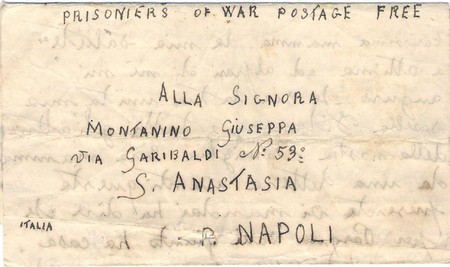 PRISONIERS OF WAR POSTAGE FREE
ALLA SIGNORA
MONTANINO GIUSEPPA
VIA GARIBALDI N: 53:
S. ANASTASIA
ITALIA
P. NAPOLI